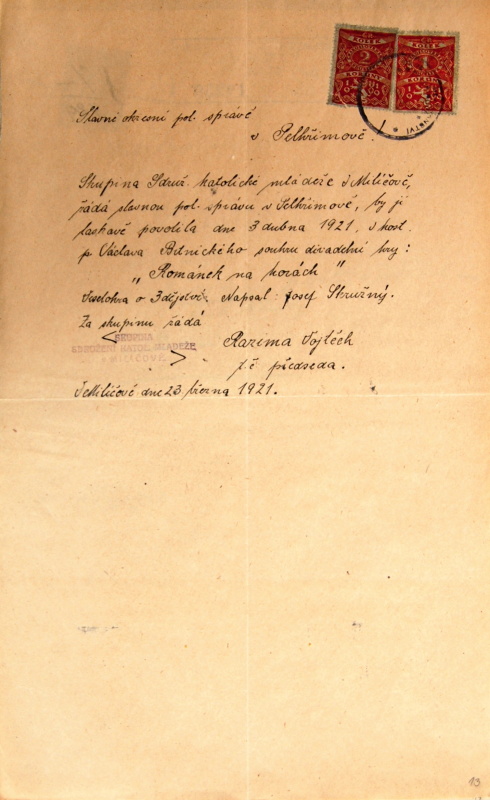 ČR. KOLEK 2 KORUNY
ČR. KOLEK 1 KORUNA
Slavné okresní pol. správě
v Pelhřimově!
Skupina Sdruž. katolické mládeže v Milíčově,
řádá slavnou pol. správu v Pelhřimově, by jí
laskavě povolila dne 3 dubna 1921, v host.
p. Václava Brtnického souhru divadelní hry:
„Románek na horách"
Veselohra o 3 dějství. Napsal: Josef Stružný.
Za skupinu řádá
SKUPINA
SDRUŽENÍ KATOL. MLÁDEŽE
V MILÍČOVĚ.
Razima Vojtěch
t. č. předseda.
V Milíčově dne 23. března 1921.
13